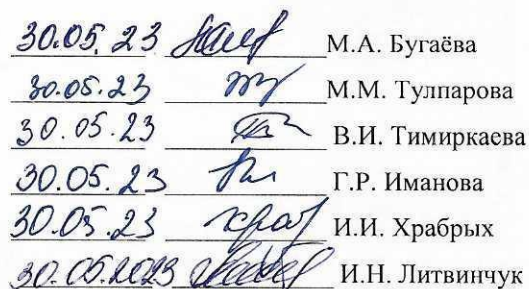 30.05.23 М.А. Бугаёва
30.05.23 М.М. Тулпарова
30.05.23 В.И. Тимиркаева
30.05.23 Г.Р. Иманова
30.05.23 И.И. Храбрых
30.05.2023 И.Н. Литвинчук